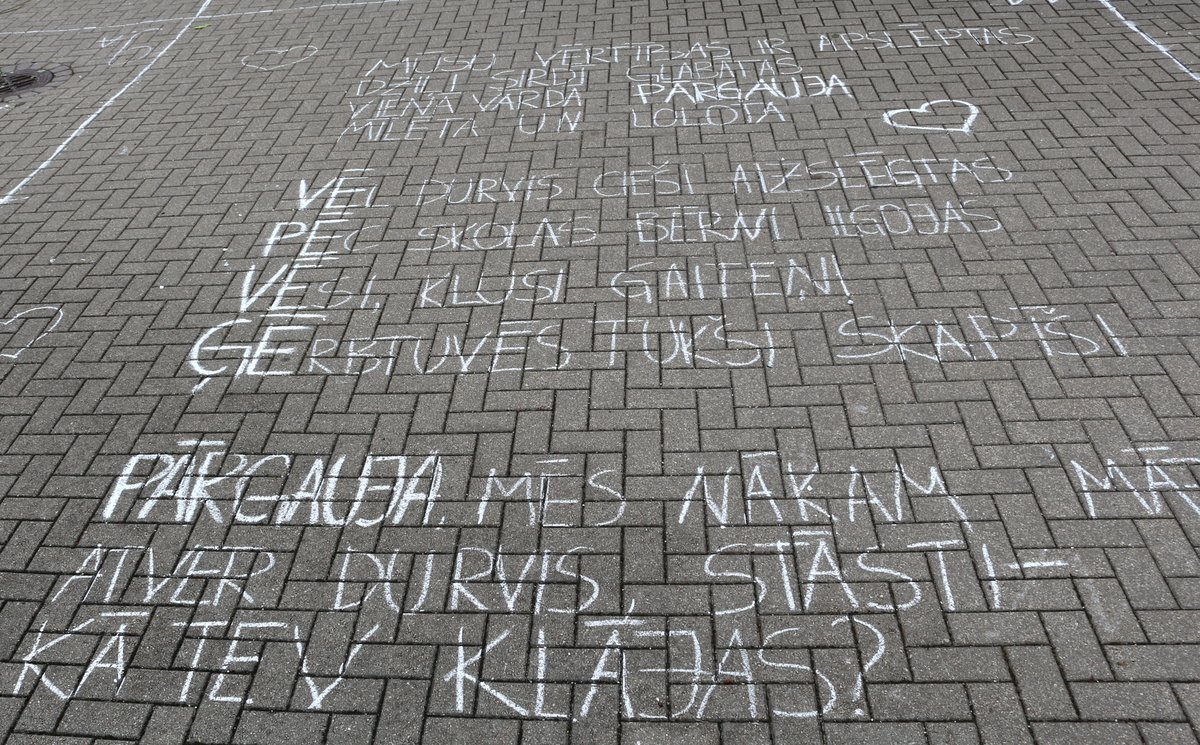 MŪSU VĒRTĪBAS IR APSLĒPTAS
DZIĻI SIRDĪ GLABĀTAS
VIENĀ VĀRDĀ PĀRGAUJA
MĪLĒTA UN LOLOTA
VĒL DURVIS CIEŠI AIZSLĒGTAS
PĒC SKOLAS BĒRNI ILGOJAS
VĒSI, KLUSI GAITEŅI
ĢĒRBTUVĒS TUKŠI SKAPĪŠI
PĀRGAUJA. MĒS NĀKAM MĀ
ATVER DURVIS, STĀSTI-
KĀ TEV KLĀJAS?